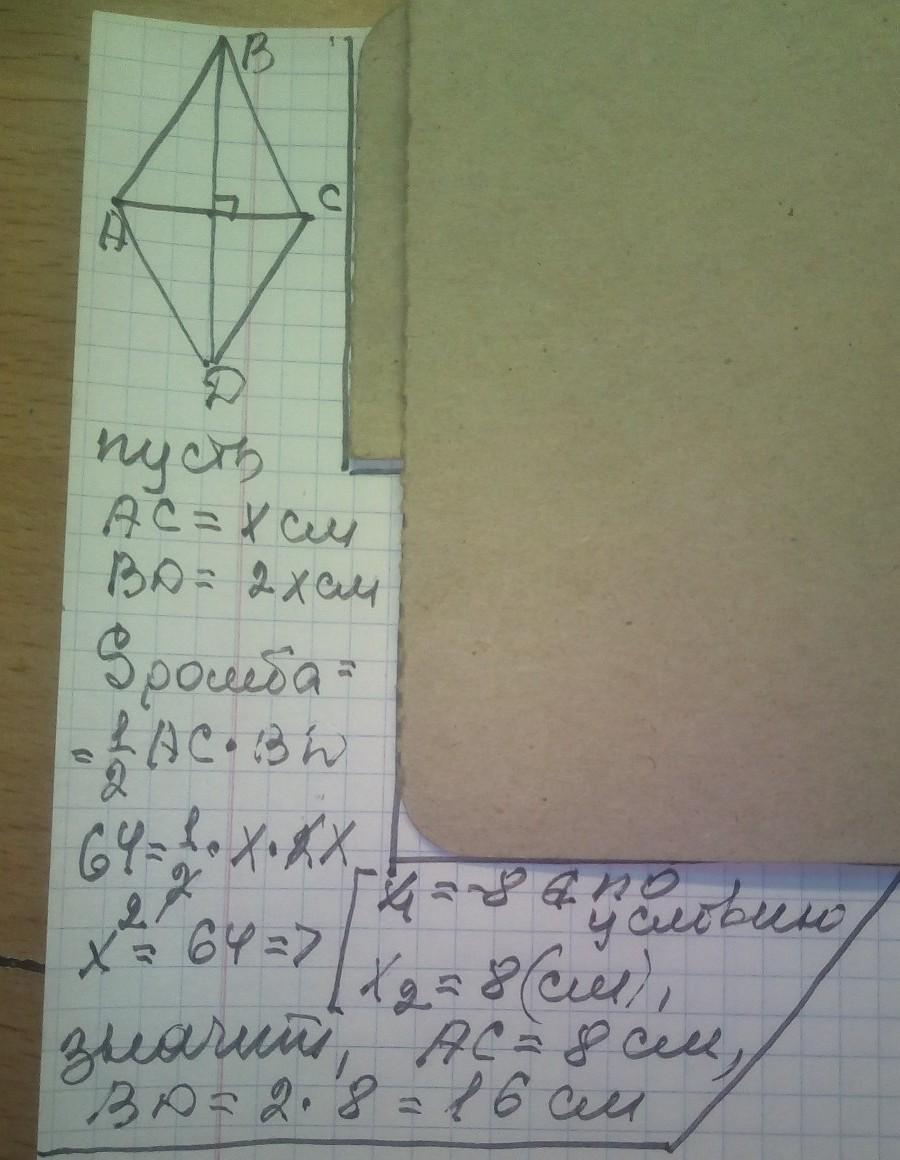 B
A
C
D
пусть
AC = x см
BD = 2x см
Sромба =
= 1/2 AC · BD
64 = 1/2 · x · 2x
x² = 64 => [ x₁ = -8 ∉ по условию
x₂ = 8 (см),
значит, AC = 8 см,
BD = 2 · 8 = 16 см